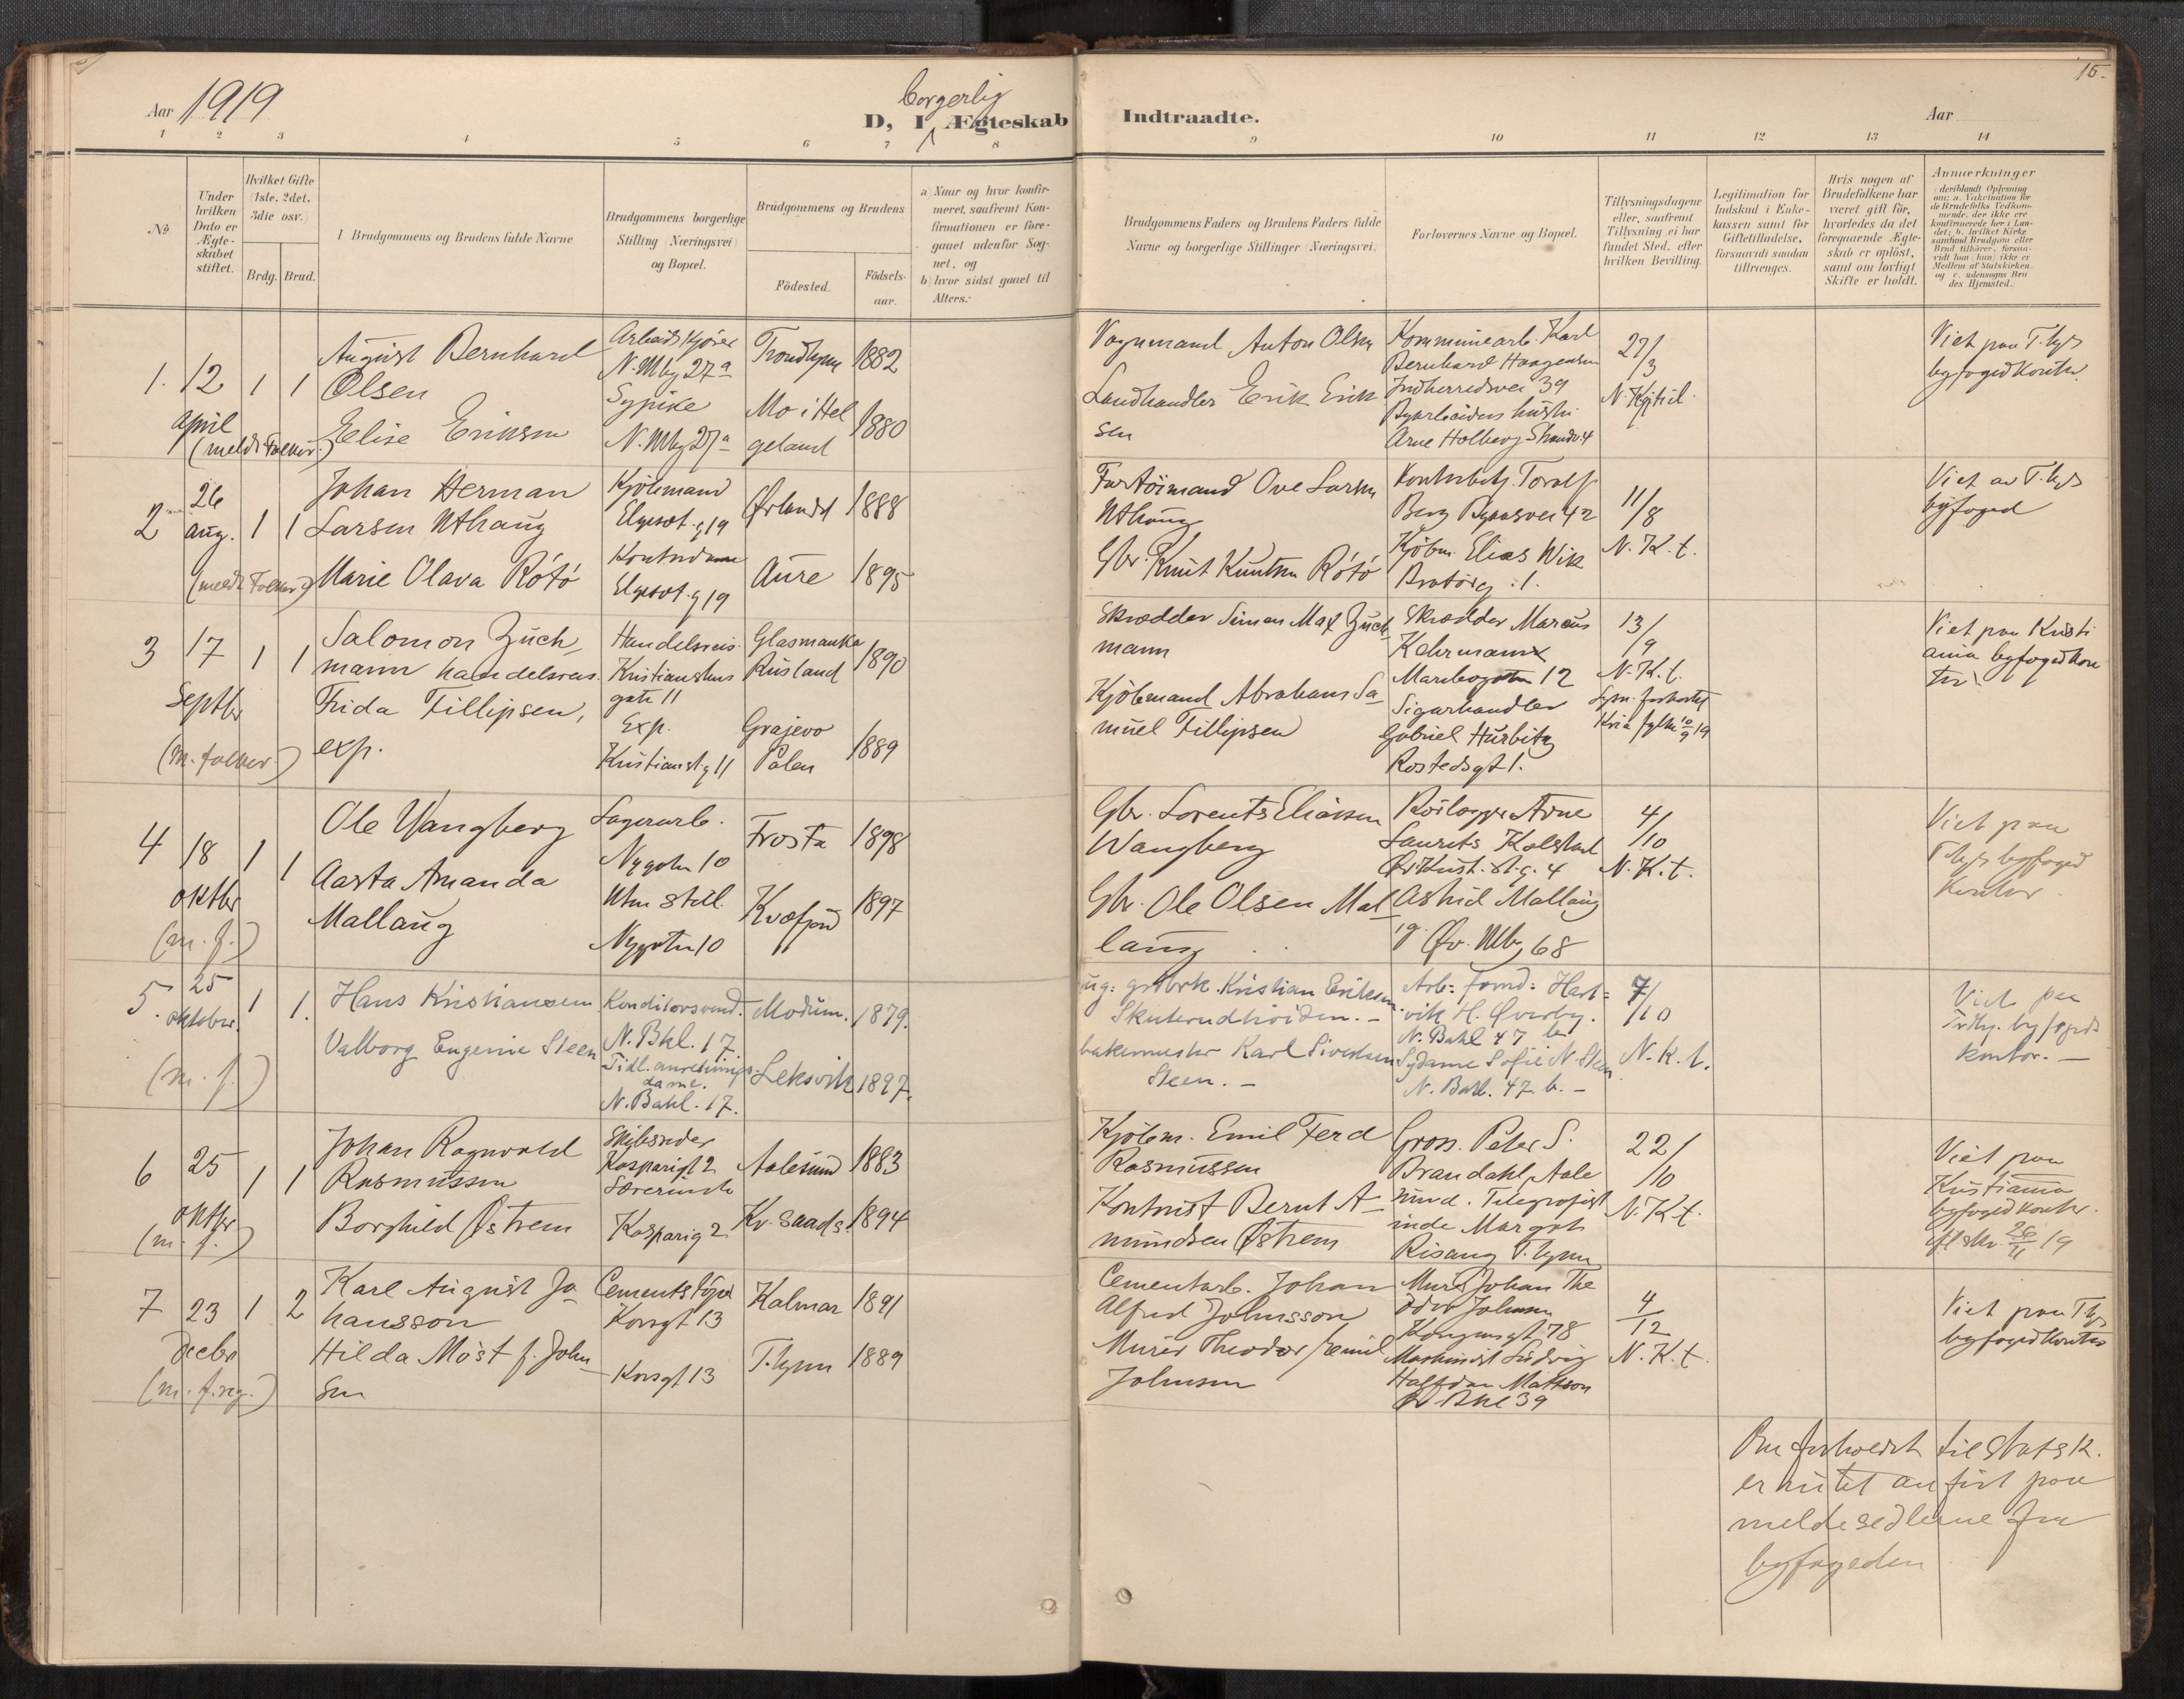 Aar 1919
borgerlig
D, I Ægteskab
Indtraadte.
Aar
15.
1 2 3 4 5 6 7 8 9 10 11 12 13 14
No
Under hvilken Dato er Ægteskabet stiftet.
Hvilket Gifte (1ste, 2det, 3die osv.)
Brdg. Brud.
Brudgommens og Brudens fulde Navne
Brudgommens borgerlige Stilling (Næringsvei) og Bopæl.
Brudgommens og Brudens
Födested.
Födselsaar.
a) Naar og hvor konfirmeret, saafremt Konfirmationen er foregaaet udenfor Sognet, og
b) hvor sidst gaaet til Alters.
Brudgommens Faders og Brudens Faders fulde Navne og borgerlige Stillinger (Næringsvei)
Forlovernes Navne og Bopæl.
Tillysningsdagene eller, saafremt Tillysning ei har fundet Sted, efter hvilken Bevilling.
Legitimation for Indskud i Enkekassen samt for Giftetilladelse, forsaavidt saadan tiltrænges.
Hvis nogen af Brudefolkene har været gift för, hvorledes da det foregaaende Ægteskab er oplöst, samt om lovligt Skifte er holdt.
Anmærkninger
1. 12 april 1 1
August Bernhard
Olsen
Elise Eriksen
N. Mbg 27a
Sypike
N. Mbg 27a
Trondhjem 1882
Mo i Hel
geland 1880
Vognmand Anton Olsen
Landhandler Erik Erik
sen
Kommunearb. Karl
Bernhard Haagensen
Indherredsvei 39
Arne Holberg Strandv 4
27/3
Viet paa T.hjs
byfogedkontor
2 26 aug. 1 1
Johan Herman
Larsen Uthaug
Marie Olava Rötö
Kjöbmand
Elgesæt.g 19
Kontordame
Elgesæt.g 19
Örlandet 1888
Aure 1895
Fartöimand Ove Larsen
Uthaug
Gbr. Knut Knutsen Rötö
Berg Byaasvei 42
Kjöbm. Elias Wik
Bratörg. 1.
11/8
N. K. t.
Viet av T.hjs
byfoged
3 17 Septbr 1 1
(m. folker.)
Salomon Zuch
mann handelsreis.
Frida Fillipsen,
exp.
Handelsreis.
Kristianstens
gate 11
Exp.
Kristianst.g 11
Glasmanka
Rusland 1890
Grajevo
Polen 1889
Skrædder Simon Max Zuch
mann
Kjöbmand Abraham Sa
muel Fillipsen
Skrædder Marcus
Kahrmann
12
Sigarhandler
Gabriel Hurbitz
Rostedsgt 1.
13/9
N. K. t.
Viet paa Kristi
ania byfogedkon
tor
4 18 oktbr 1 1
(m. f.)
Ole Wangberg
Aasta Amanda
Mallaug
Lagerarb.
Nygatn 10
Uten still.
Nygatn 10
Frosta 1898
Kvæfjord 1897
Gbr. Lorents Eliassen
Wangberg
Gbr. Ole Olsen Mal
laug
Rörlægger Arne
Laurits Kolstad
Astrid Mallaug
Öv. Mbg 68
4/10
N. K. t.
Viet paa
T.hjs byfoged
kontor
5. 25 oktober. 1 1.
(m. f.)
Hans Kristiansen
Valborg Eugenie Steen
Konditorsvend.
N. Bkl. 17.
Tidl. anretnings-
dame.
N. Bakl. 17.
Modum. 1879.
Leksvik 1897.
Kristian Eriksen
Skuterudhöiden. -
bakermester Karl Sivertsen
Steen. -
Arb: formd: Hart=
vik H. Överby.
N. Bakl 47 b
Sydame Sofie N. Steen
N. Bakl. 47 b. -
7/10
N. K. t.
Viet paa
Trdhj. byfogeds
kontor. -
6 25 oktbr 1 1
(m. f.)
Johan Ragnvald
Rasmussen
Borghild Östrem
Skibsreder
Kasparigt 2
Kasparig 2
Aalesund 1883
Kr. saads. 1894
Kjöbm. Emil Ferd
Rasmussen
Kontorist Bernt A-
mundsen Östrem
Gross. Peter S.
Brandahl, Aale
sund. Telegrafist
inde Margot
Risaug T.hjem
22/10
N. K. t.
Viet paa
Kristiania
byfogedkontor.
7 23 Decbr 1 2
(m. f.reg.)
Karl August Jo
hansson
Hilda Möst f. John
sen
Cementstöper
Korsgt 13
Korsgt 13
Kalmar 1891
T.hjem 1889
Cementarb. Johan
Alfred Johnsson
Murer Theodor Emil
Johnsen
Murer Johan The
odor Johnsen
Kongensgt 78
Maskinist Ludvig
Halfdan Mattson
4/12
N. K. t.
Viet paa T.hjs
byfogedkontor
Om forholdet til Statsk.
er intet anfört paa
meldesedlerne fra
byfogeden